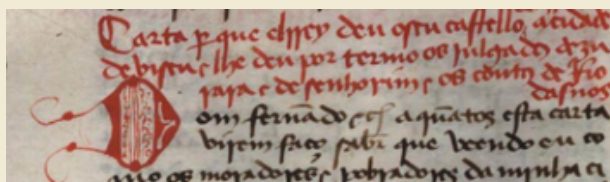 Carta per que elrrey deu o seu castello, a cidade
de viseu e lhe deu por termo os julgados de zu
rara e de senhorim e os coutos de Rio
dasnos
Dom fernando etc a quantos esta carta
virem faço saber que veendo eu co
mo os moradores e pobradores da minha ci